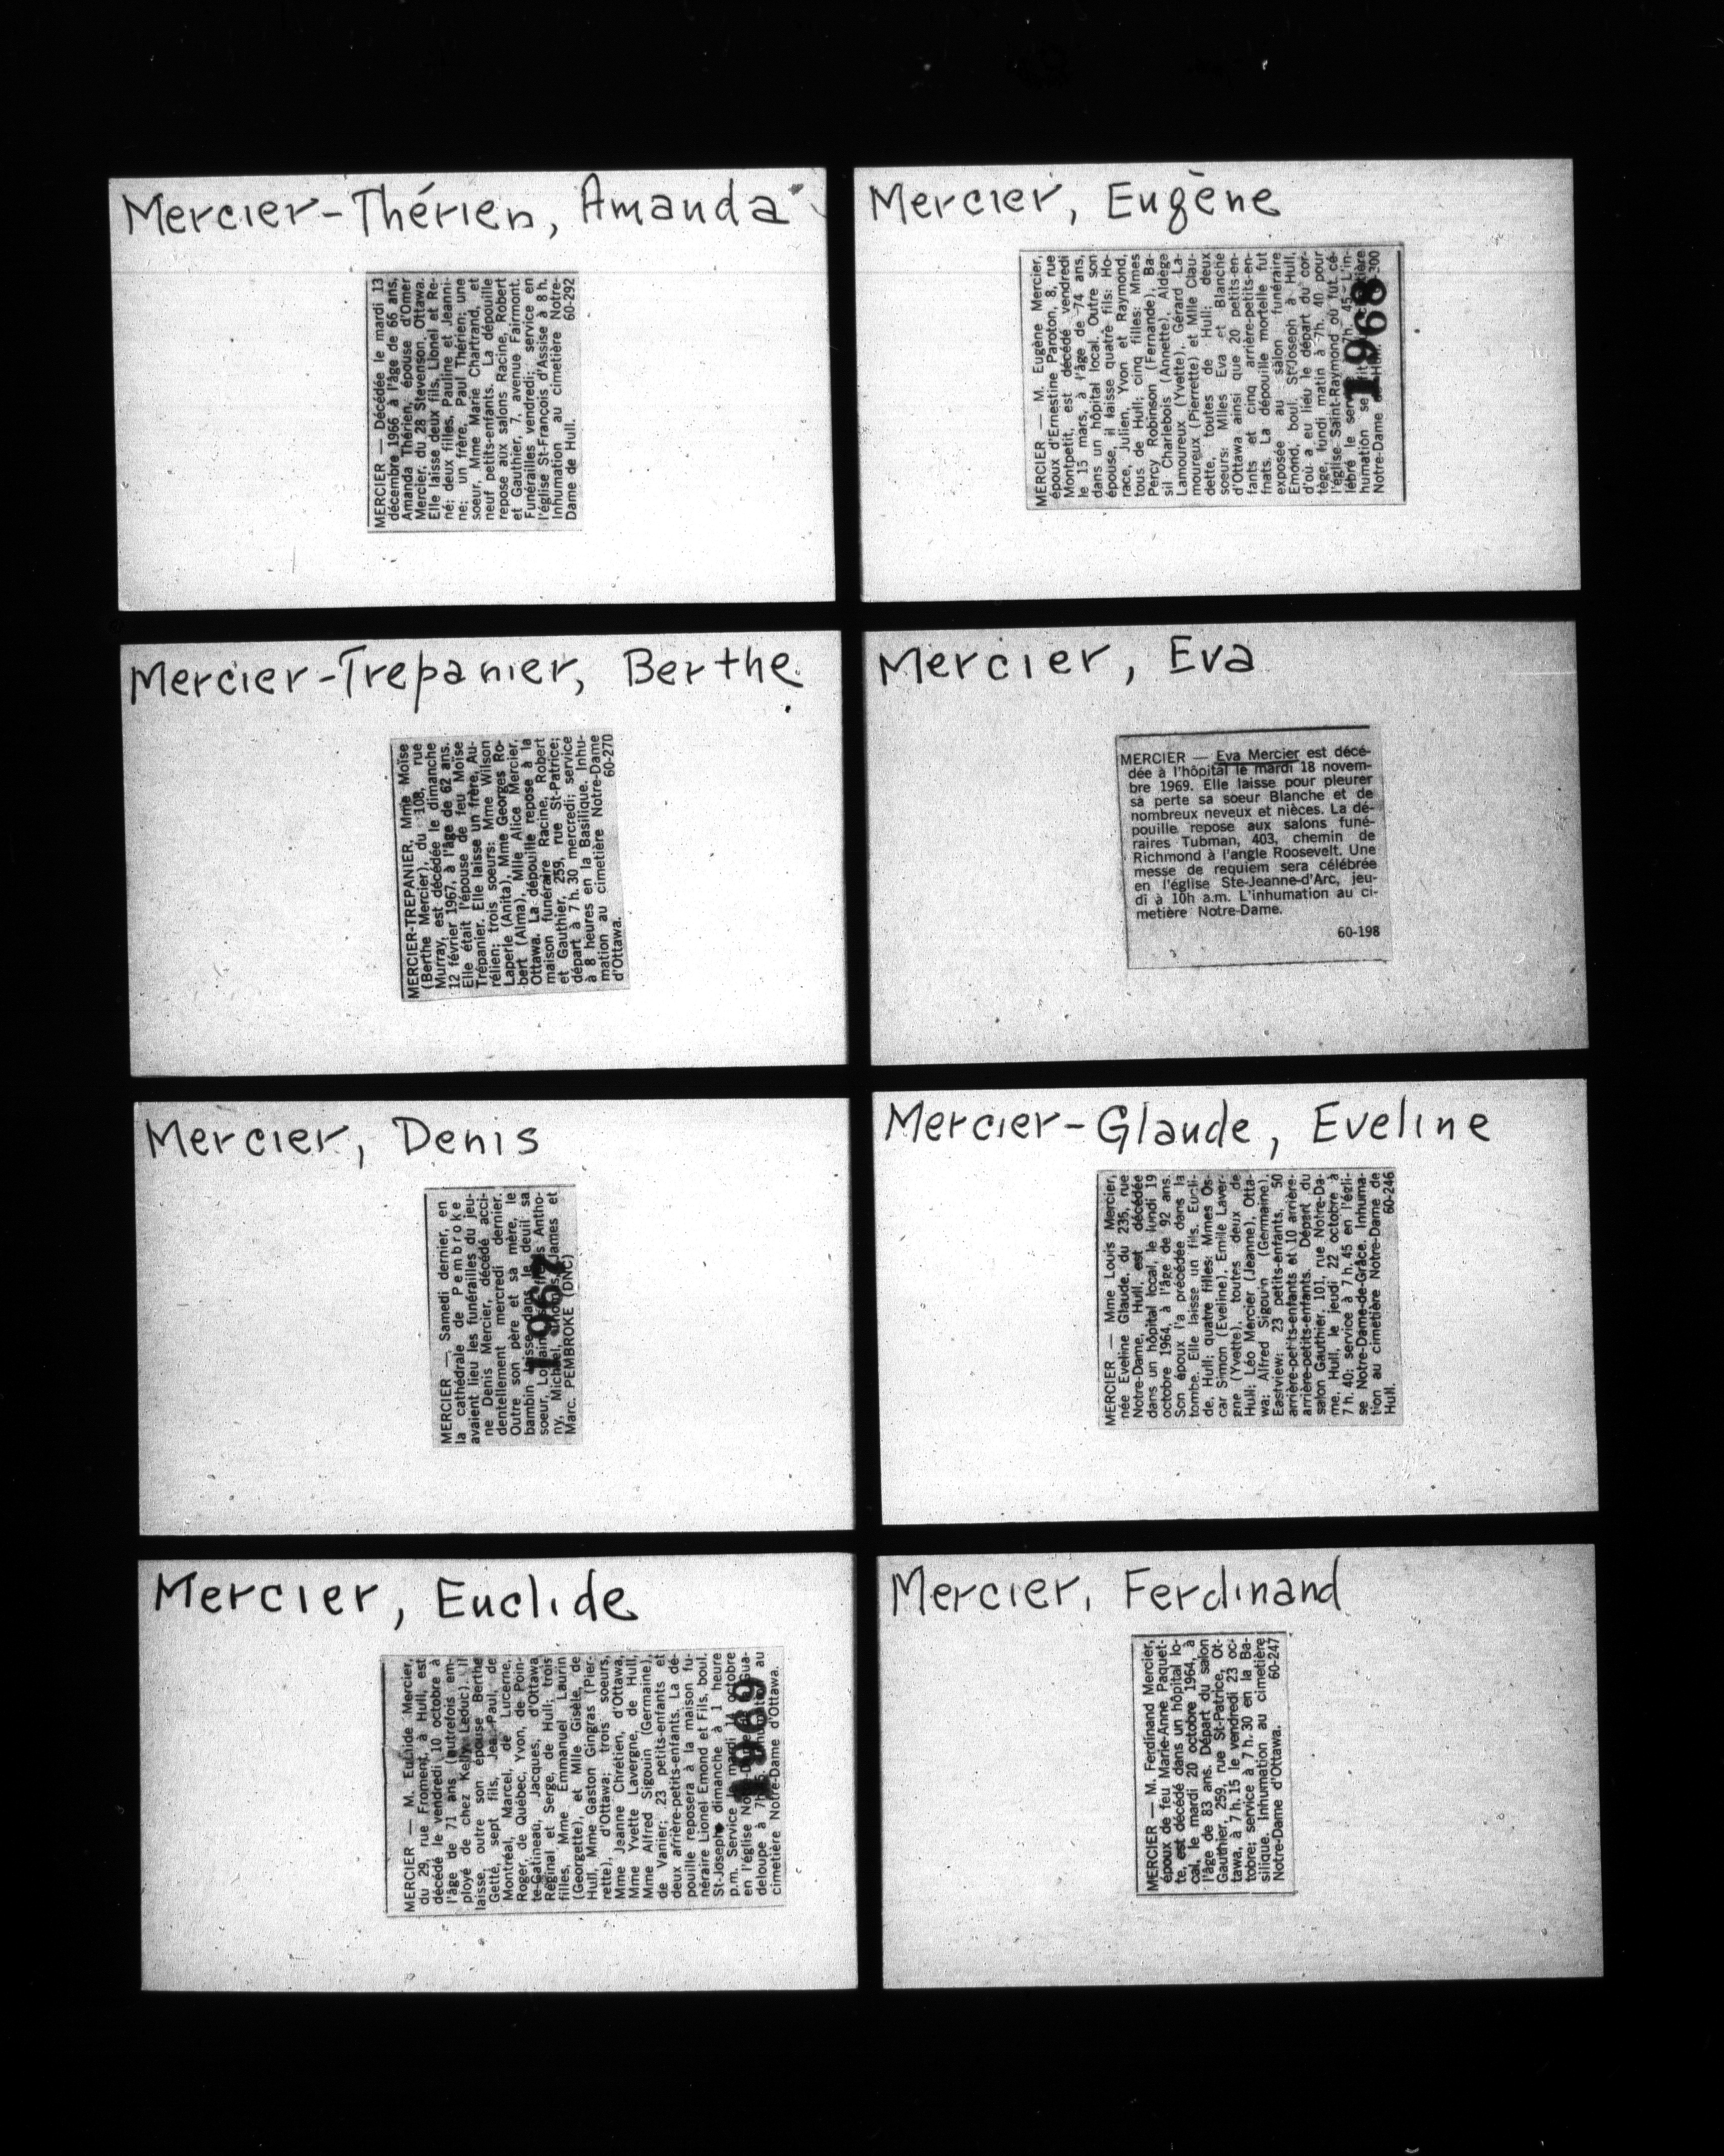 Mercier-Thérien, Amanda
MERCIER — Décédée le mardi 13
décembre 1966 à l'âge de 66 ans,
Amanda Thérien, épouse d'Omer
Mercier, du 28 Stevenson, Ottawa.
Elle laisse deux fils, Lionel et Re-
né; deux filles, Pauline et Jeanni-
ne; un frère, Paul Thérien; une
soeur, Mme Marie Chartrand, et
neuf petits-enfants. La dépouille
repose aux salons Racine, Robert
et Gauthier, 7, avenue Fairmont.
Funérailles vendredi; service en
l'église St-François d'Assise à 8 h.
Inhumation au cimetière Notre-
Dame de Hull. 60-292
Mercier, Eugène
MERCIER — M. Eugène Mercier,
époux d'Ernestine Paroton, 8, rue
Montpetit, est décédé vendredi
le 15 mars, à l'âge de 74 ans,
dans un hôpital local. Outre son
épouse, il laisse quatre fils: Ho-
race, Julien, Yvon et Raymond,
tous de Hull; cinq filles: Mmes
Percy Robinson (Fernande), Ba-
sil Charlebois (Annette), Aldège
Lamoureux (Yvette), Gérard La-
moureux (Pierrette) et Mlle Clau-
dette, toutes de Hull; deux
soeurs: Mlles Eva et Blanche
d'Ottawa ainsi que 20 petits-en-
fants et cinq arrière-petits-en-
fnats. La dépouille mortelle fut
exposée au salon funéraire
Emond, boul. St-Joseph à Hull,
d'où a eu lieu le départ du cor-
tège, lundi matin à 7h. 40 pour
l'église Saint-Raymond où fut cé-
lébré le 7h. 45. L'in-
humation se
Notre-Dame 300
1968
Mercier-Trepanier, Berthe
MERCIER-TREPANIER, Mme Moïse
(Berthe Mercier), du 108, rue
Murray, est décédée le dimanche
12 février 1967, à l'âge de 62 ans.
Elle était l'épouse de feu Moïse
Trépanier. Elle laisse un frère, Au-
rélien; trois soeurs: Mme Wilson
Laperle (Anita), Mme Georges Ro-
bert (Alma), Mlle Alice Mercier,
Ottawa. La dépouille repose à la
maison funéraire Racine, Robert
et Gauthier, 259, rue St-Patrice;
départ à 7 h. 30 mercredi; service
à 8 heures en la Basilique. Inhu-
mation au cimetière Notre-Dame
d'Ottawa. 60-270
Mercier, Eva
MERCIER — Eva Mercier est décé-
dée à l'hôpital le mardi 18 novem-
bre 1969. Elle laisse pour pleurer
sa perte sa soeur Blanche et de
nombreux neveux et nièces. La dé-
pouille repose aux salons funé-
raires Tubman, 403, chemin de
Richmond à l'angle Roosevelt. Une
messe de requiem sera célébrée
en l'église Ste-Jeanne-d'Arc, jeu-
di à 10h a.m. L'inhumation au ci-
metière Notre-Dame.
60-198
Mercier, Denis
MERCIER — Samedi dernier, en
la cathédrale de Pembroke
avaient lieu les funérailles du jeu-
ne Denis Mercier, décédé acci-
dentellement mercredi dernier.
Outre son père et sa mère, le
bambin laisse dans le deuil sa
soeur, Antho-
ny, Michael, James et
Marc. PEMBROKE (DNC)
1967
Mercier-Glaude, Eveline
MERCIER — Mme Louis Mercier,
née Eveline Glaude, du 235, rue
Notre-Dame, Hull, est décédée
dans un hôpital local, le lundi 19
octobre 1964, à l'âge de 92 ans.
Son époux l'a précédée dans la
tombe. Elle laisse un fils, Eucli-
de, Hull; quatre filles: Mmes Os-
car Simon (Eveline), Emile Laver-
gne (Yvette), toutes deux de
Hull; Léo Mercier (Jeanne), Otta-
wa; Alfred Sigouin (Germaine),
Eastview; 23 petits-enfants, 50
arrière-petits-enfants et 10 arrière-
arrière-petits-enfants. Départ du
salon Gauthier, 101, rue Notre-Da-
me, Hull, le jeudi 22 octobre à
7 h. 40; service à 7 h. 45 en l'égli-
se Notre-Dame-de-Grâce. Inhuma-
tion au cimetière Notre-Dame de
Hull. 60-246
Mercier, Euclide
MERCIER — M. Euclide Mercier,
du 29, rue Froment, à Hull, est
décédé le vendredi 10 octobre à
l'âge de 71 ans (autrefois em-
ployé de chez Kelly Leduc). Il
laisse, outre son épouse Berthe
Getté, sept fils, Jean-Paul, de
Montréal, Marcel, de Lucerne,
Roger, de Québec, Yvon, de Poin-
te-Gatineau, Jacques, d'Ottawa,
Réginal et Serge, de Hull; trois
filles, Mme Emmanuel Laurin
(Georgette), et Mlle Gisèle, de
Hull, Mme Gaston Gingras (Pier-
rette), d'Ottawa; trois soeurs,
Mme Jeanne Chrétien, d'Ottawa,
Mme Yvette Lavergne, de Hull,
Mme Alfred Sigouin (Germaine),
de Vanier; 23 petits-enfants et
deux arrière-petits-enfants. La dé-
pouille reposera à la maison fu-
néraire Lionel Emond et Fils, boul.
St-Joseph dimanche à 1 heure
p.m. Service le mardi 14 octobre
en l'église Gua-
deloupe à au
cimetière Notre-Dame d'Ottawa.
1969
Mercier, Ferdinand
MERCIER — M. Ferdinand Mercier,
époux de feu Marie-Anne Paquet-
te, est décédé dans un hôpital lo-
cal, le mardi 20 octobre 1964, à
l'âge de 83 ans. Départ du salon
Gauthier, 259, rue St-Patrice, Ot-
tawa, à 7 h. 15 le vendredi 23 oc-
tobre; service à 7 h. 30 en la Ba-
silique. Inhumation au cimetière
Notre-Dame d'Ottawa. 60-247